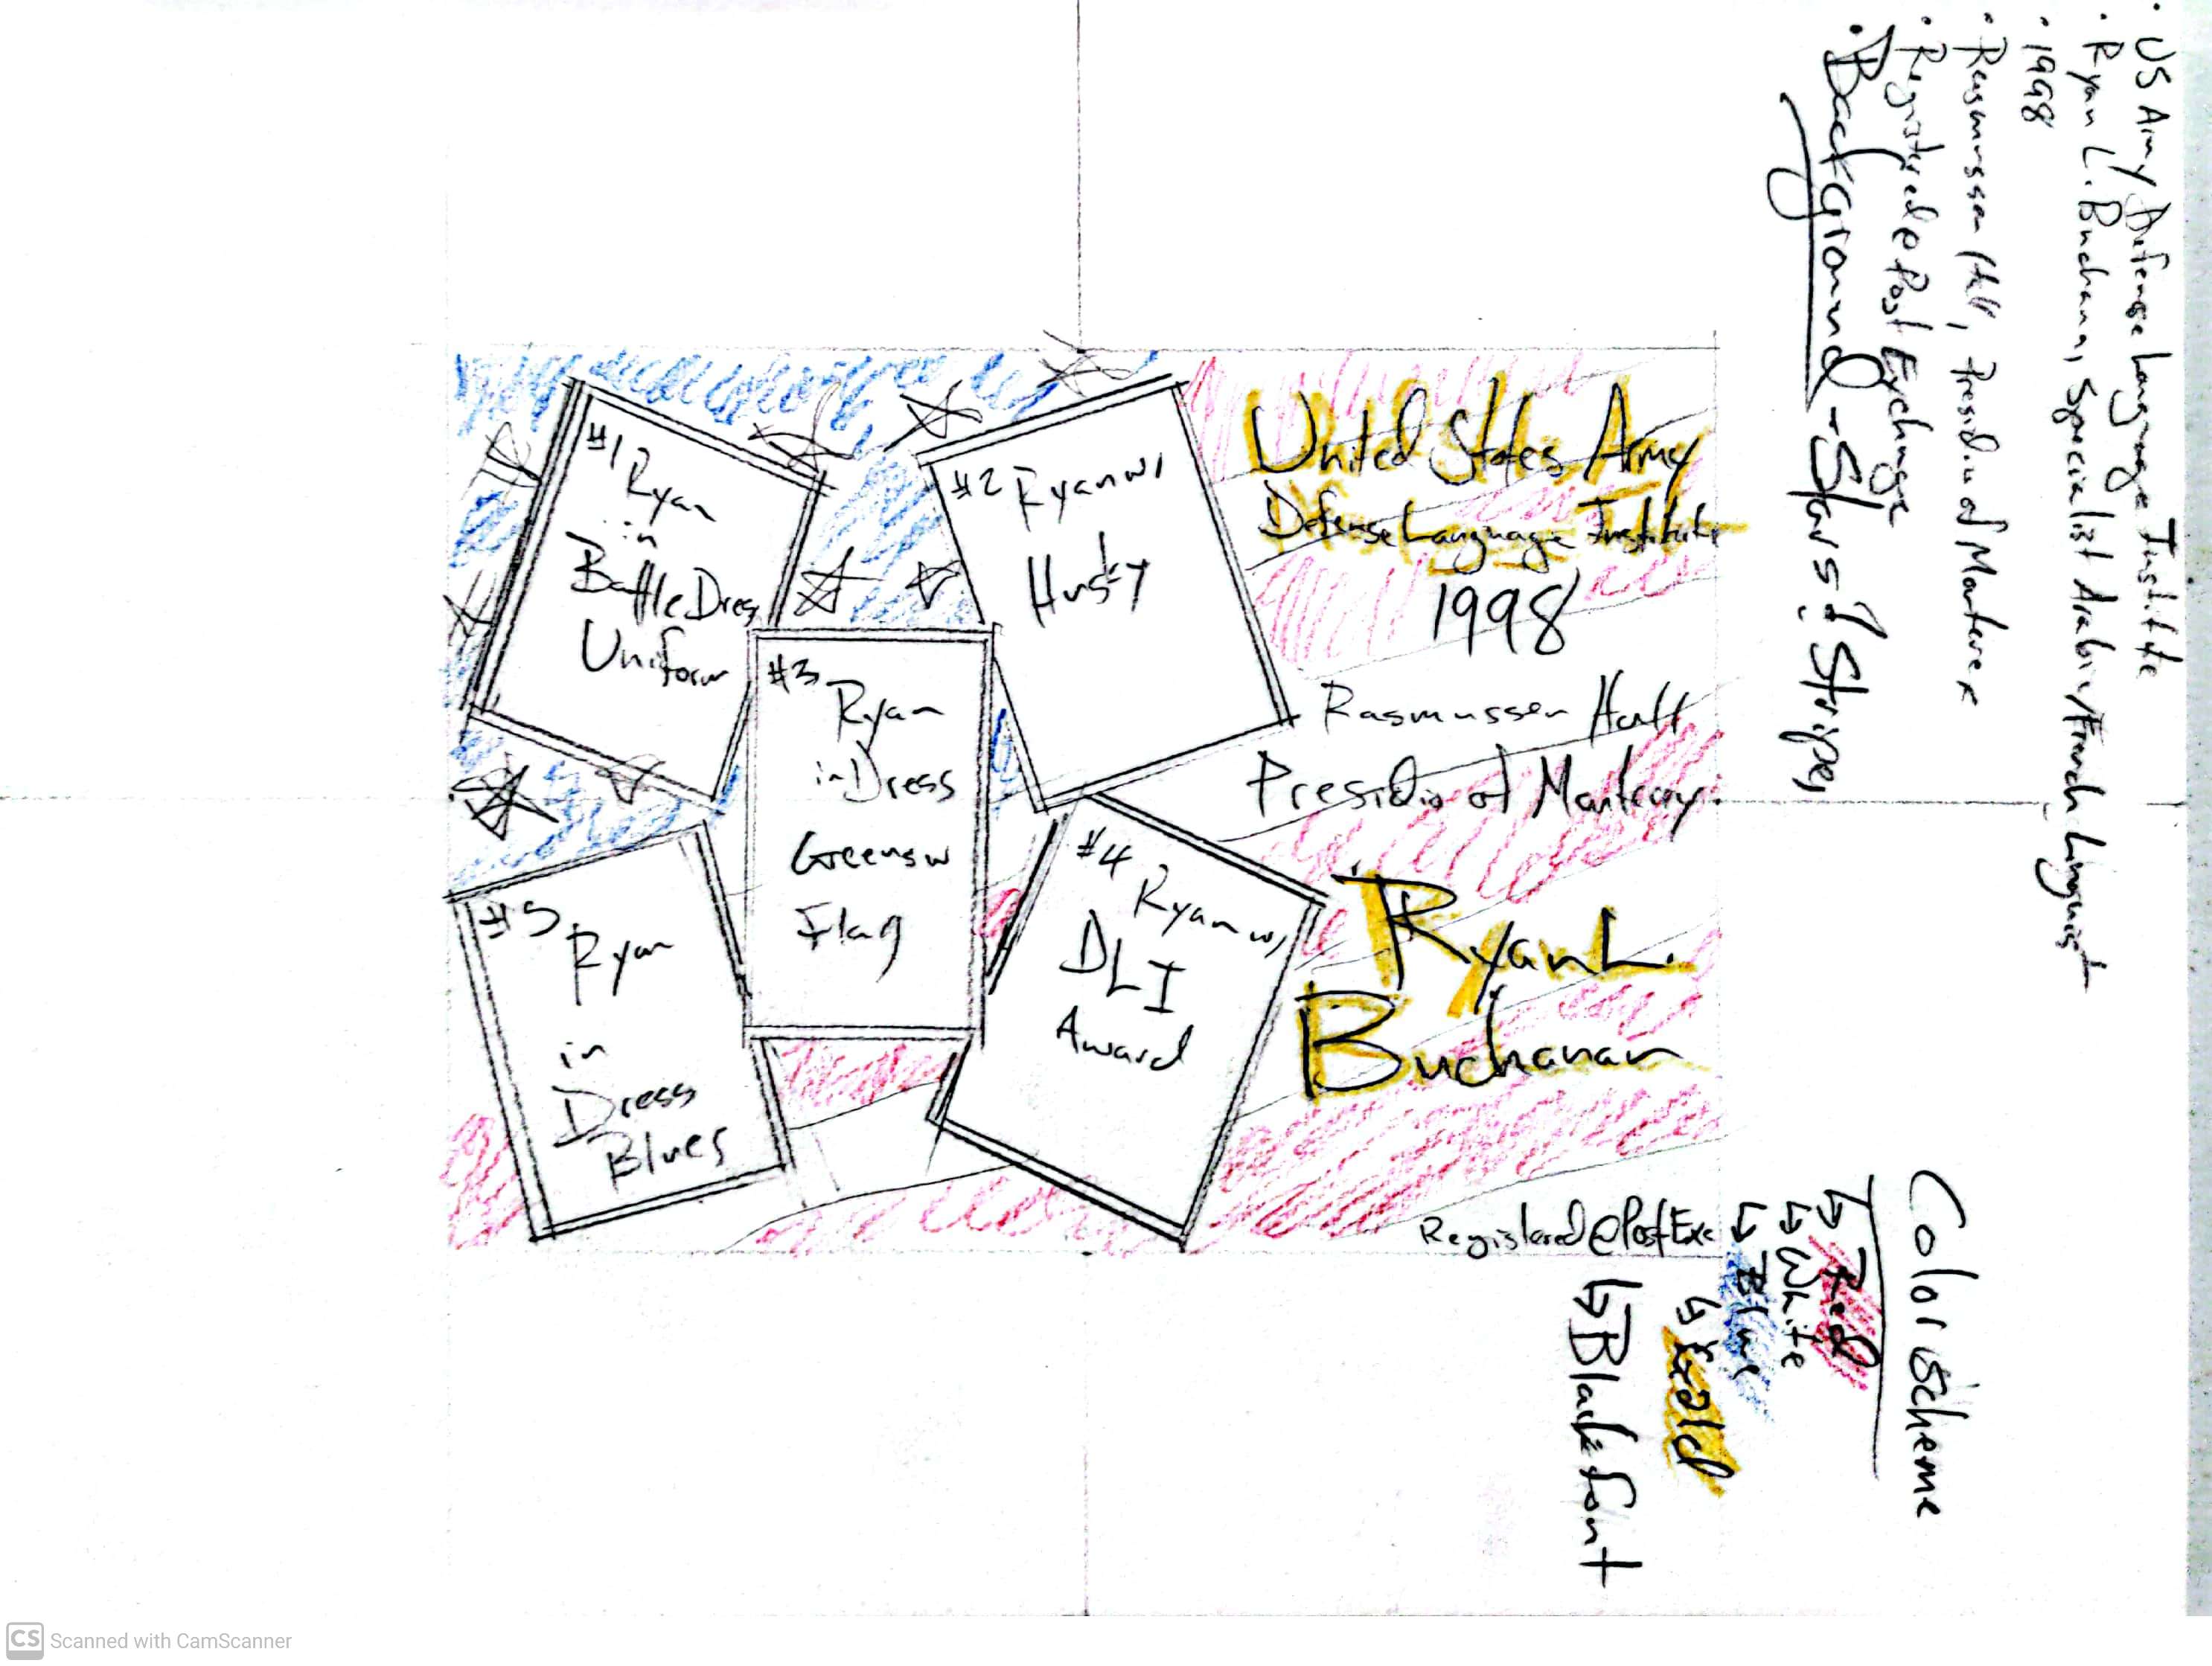 • US Army Defense Language Institute
• Ryan L. Buchanan, Specialist Arabic/French Linguist
• 1998
• Rasmussen Hall, Presidio of Monterey
• Registered @ Post Exchange
• Background - Stars & Stripes
#1 Ryan
in
Battle Dress
Uniform
#2 Ryan w/
Husky
#3
Ryan
in Dress
Greens w
Flag
#4
Ryan w/
DLI
Award
#5
Ryan
in
Dress
Blues
United States Army
Defense Language Institute
1998
Rasmussen Hall
Presidio of Monterey
Ryan L.
Buchanan
Registered @ Post Exc
Color Scheme
↳ Red
↳ White
↳ Blue
↳ Gold
↳ Black font
CS Scanned with CamScanner